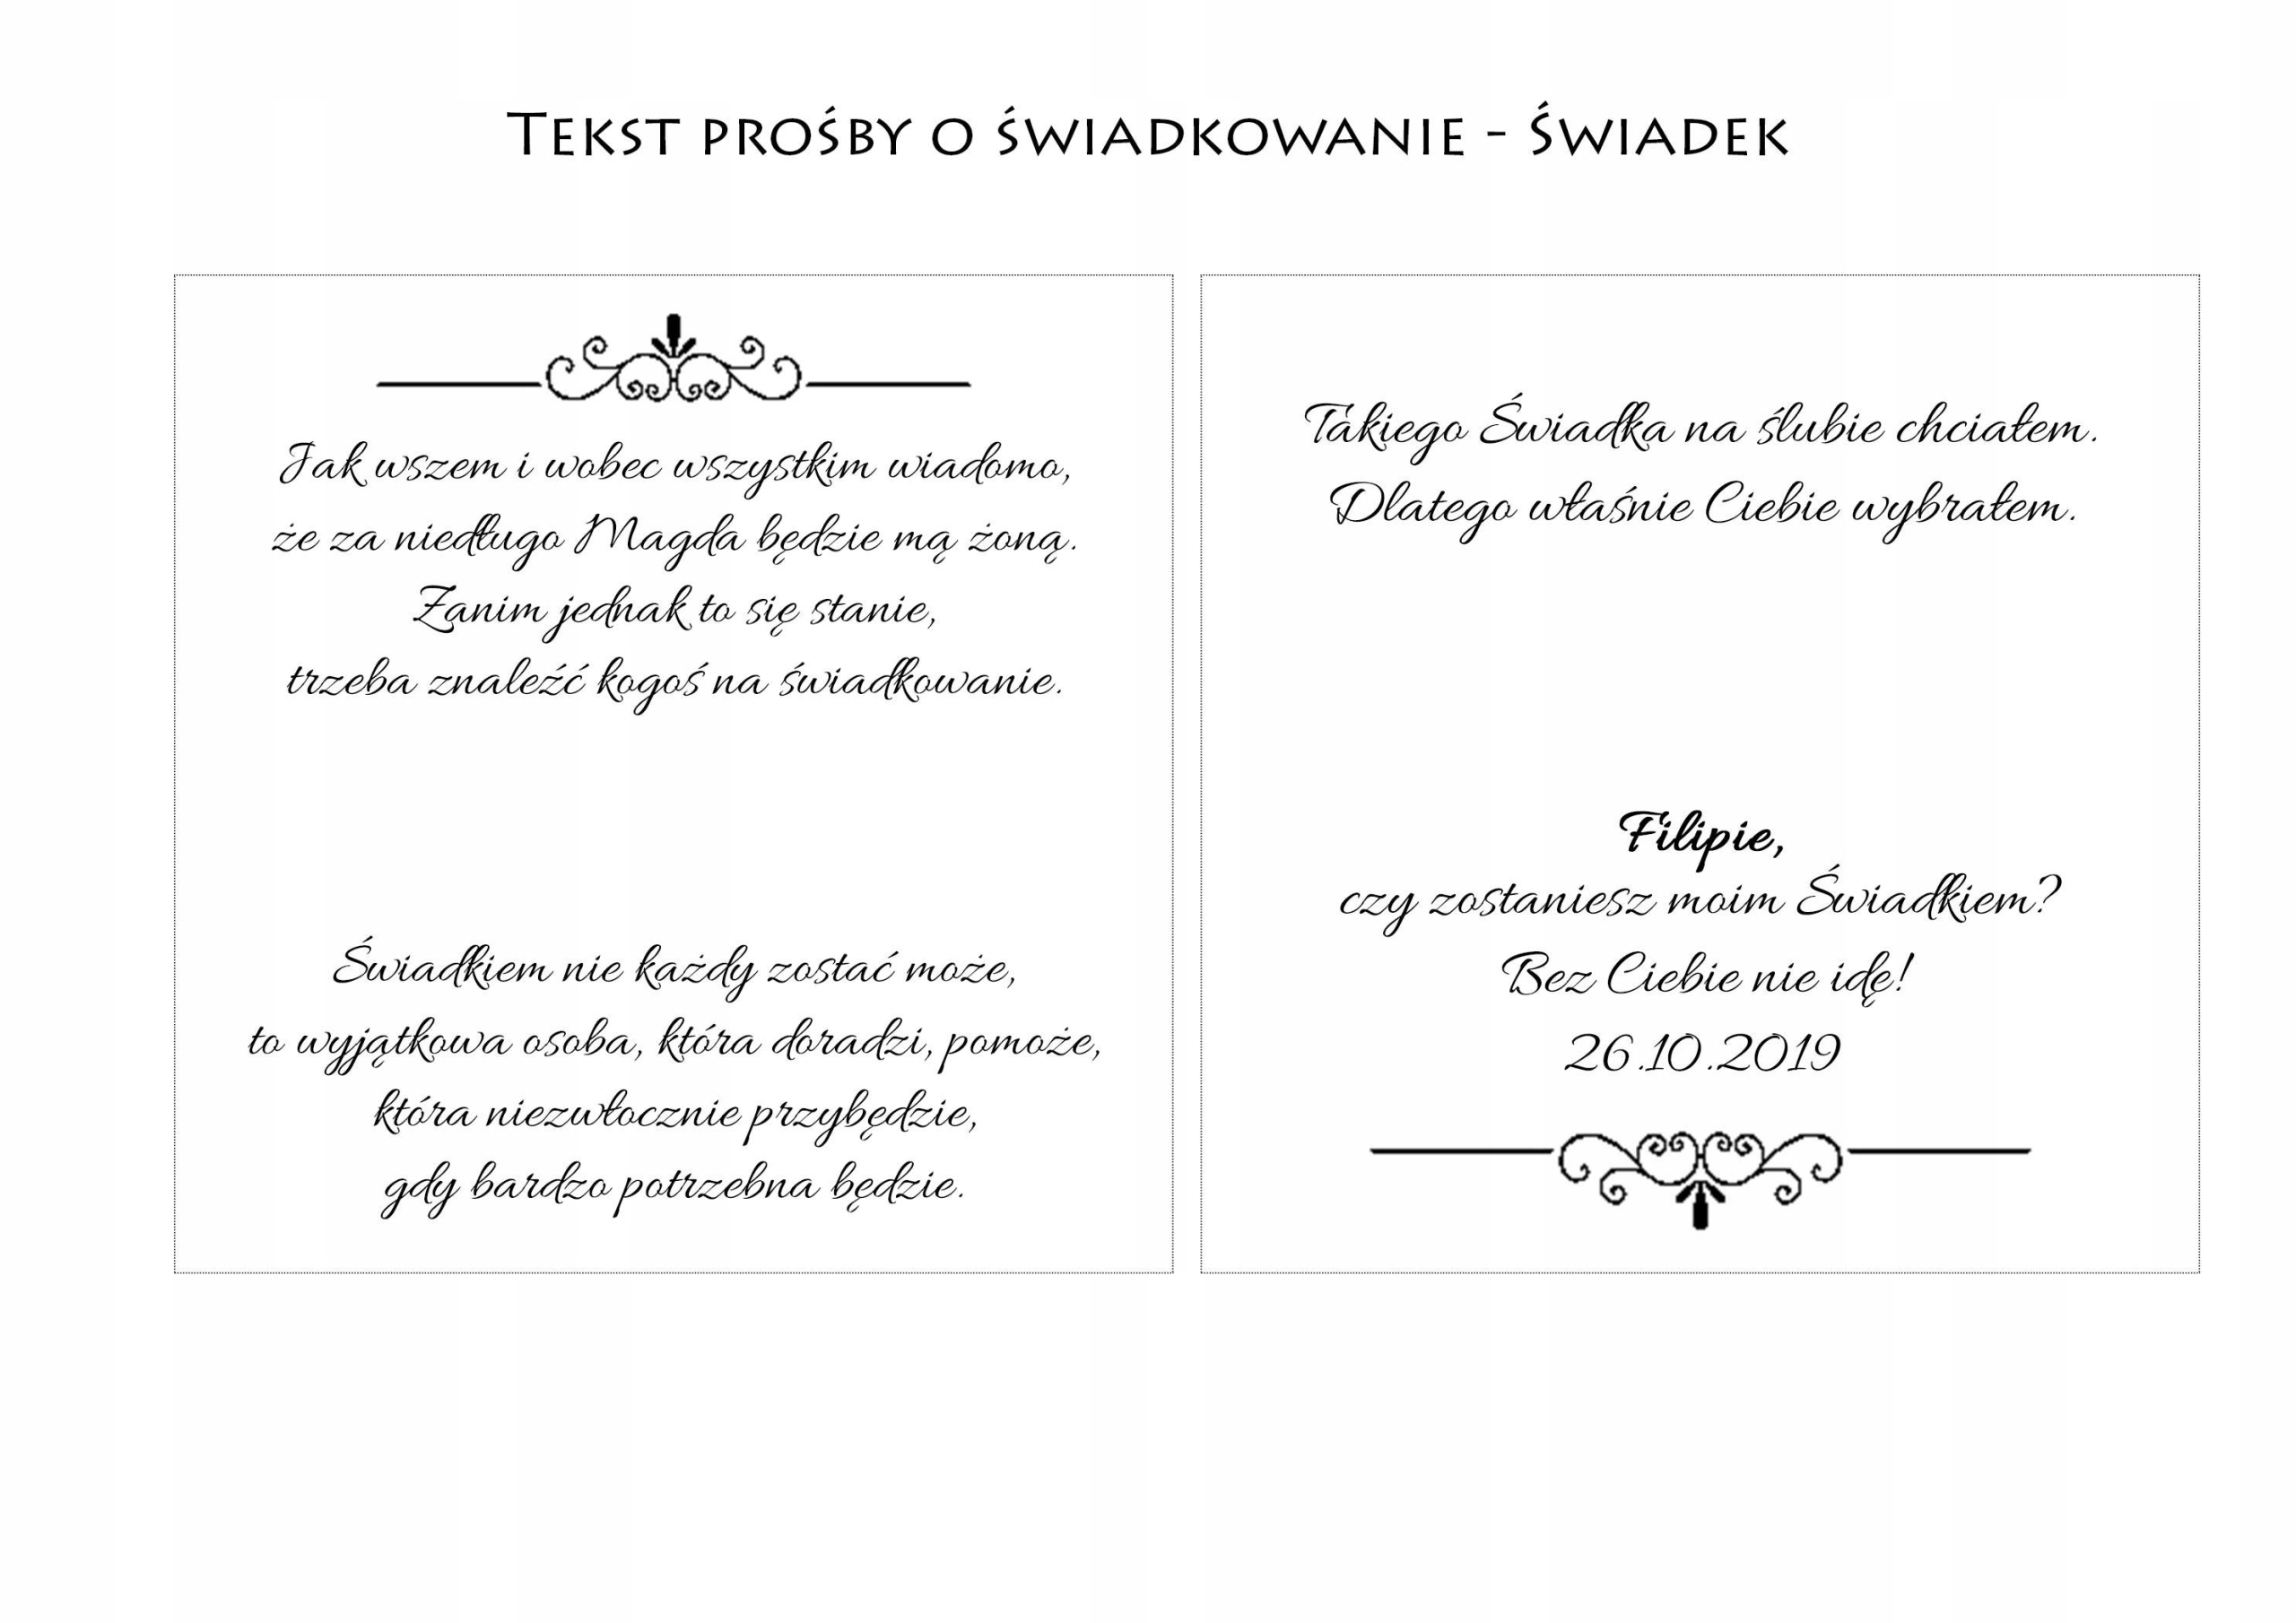 Tekst prośby o świadkowanie - świadek
Jak wszem i wobec wszystkim wiadomo,
że za niedługo Magda będzie mą żoną.
Zanim jednak to się stanie,
trzeba znaleźć kogoś na świadkowanie.
Świadkiem nie każdy zostać może,
to wyjątkowa osoba, która doradzi, pomoże,
która niezwłocznie przybędzie,
gdy bardzo potrzebna będzie.
Takiego Świadka na ślubie chciałem.
Dlatego właśnie Ciebie wybrałem.
Filipie,
czy zostaniesz moim Świadkiem?
Bez Ciebie nie idę!
26.10.2019